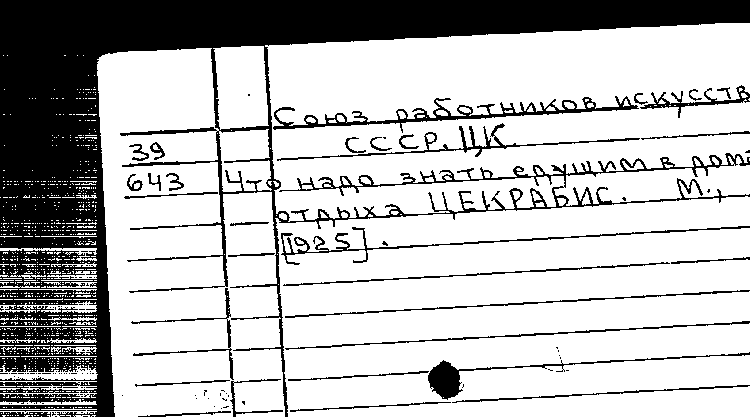 Союз работников искусств
39 СССР. ЦК.
643 Что надо знать едущим в дома
отдыха ЦЕКРАБИС. М.,
[1925].